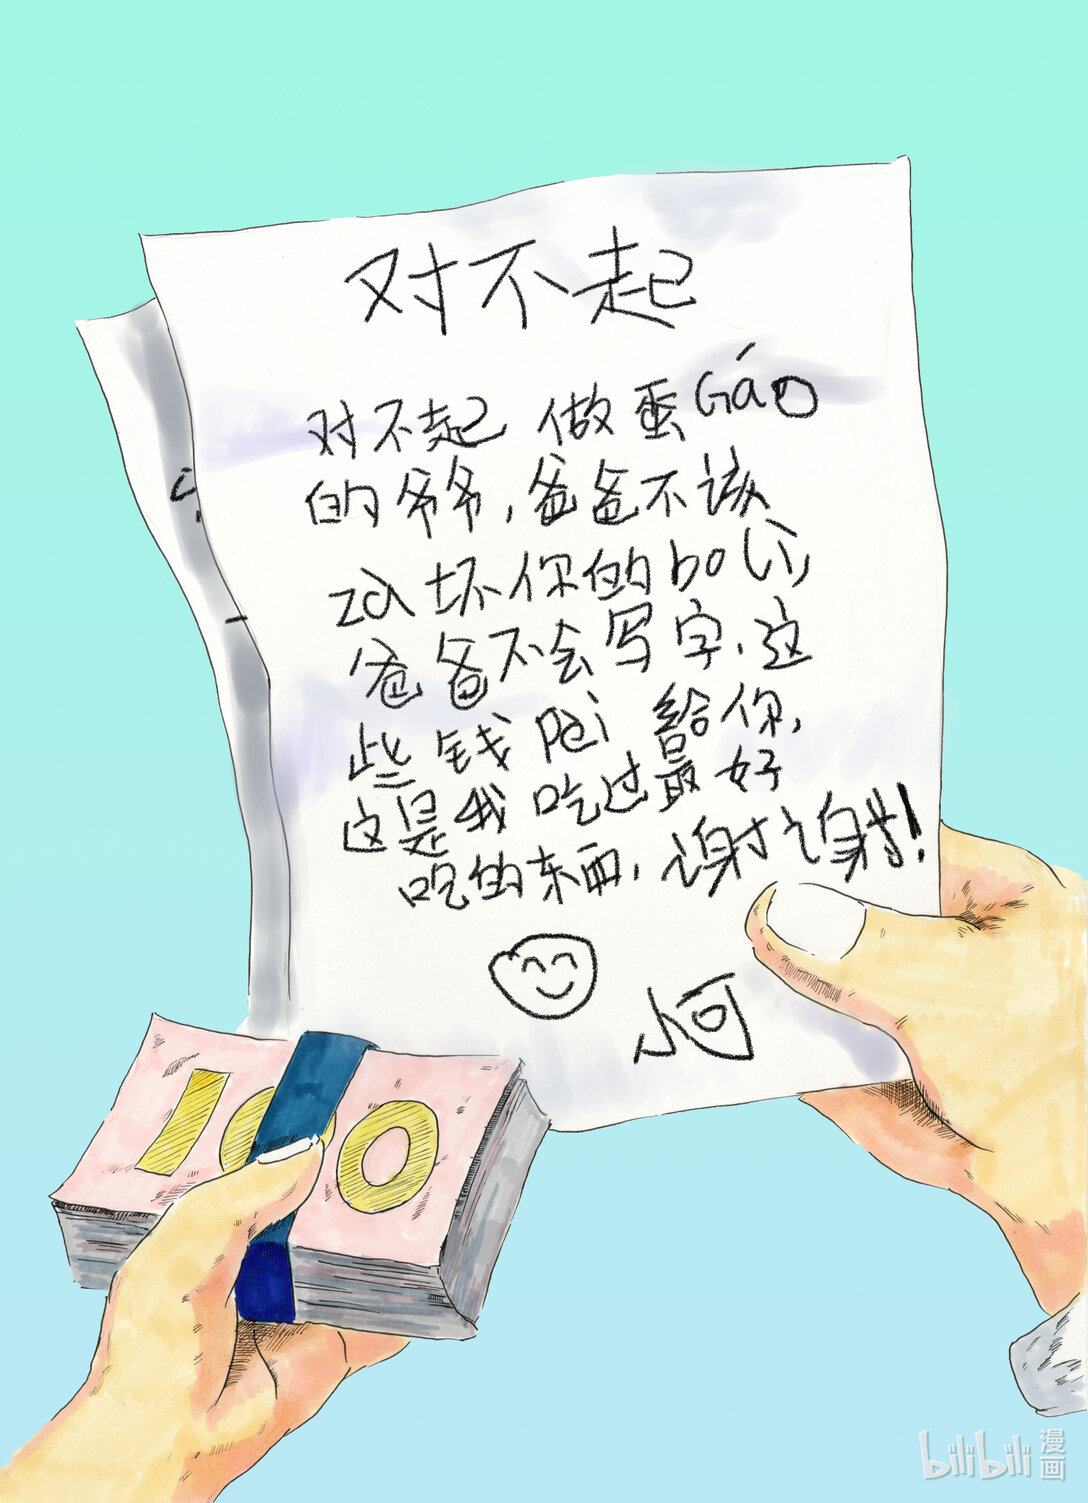 对不起
对不起 做蛋Gáo
的爷爷,爸爸不该
zá坏你的bo li,
爸爸不会写字,这
些钱Péi 給你,
这是我吃过最好
吃的东西,谢谢!
小河
100
bilibili 漫画